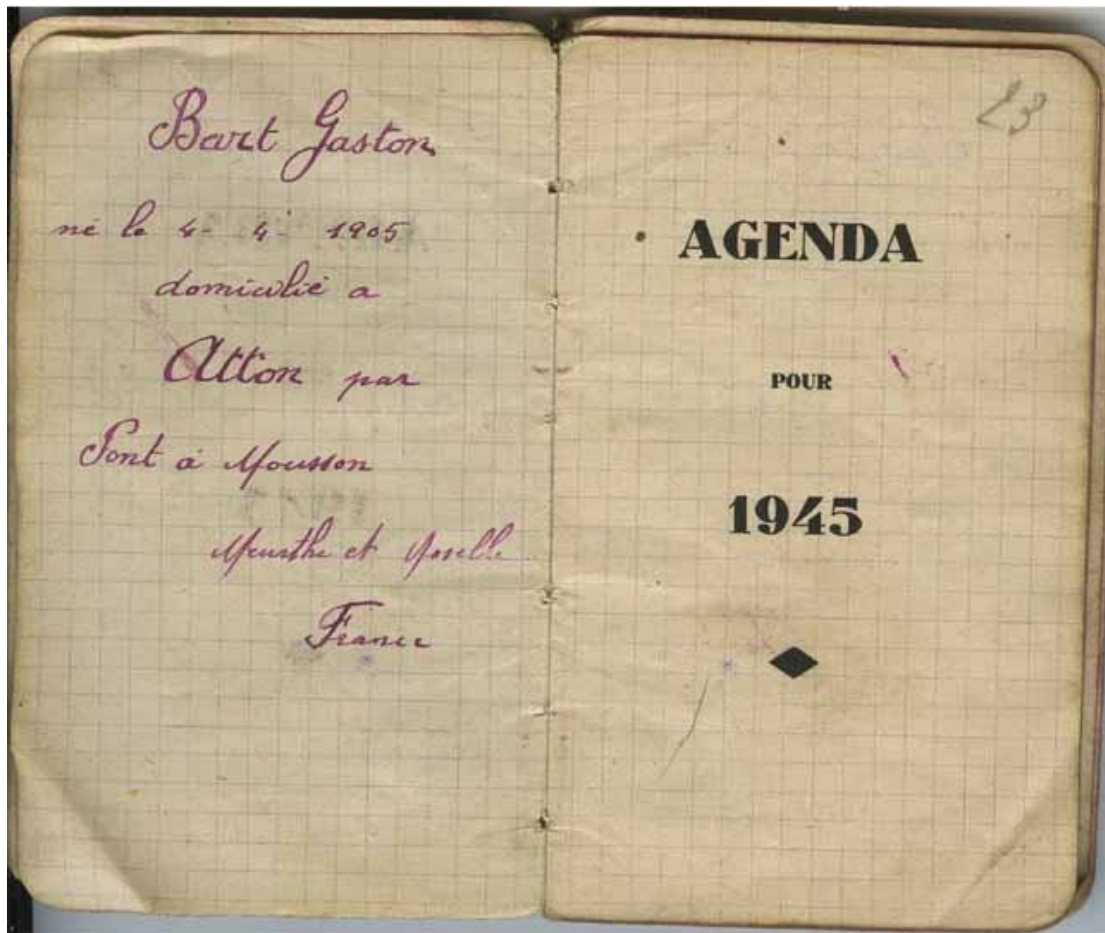 Bart Gaston
né le 4- 4- 1905
domicilié a
Atton par
Pont à Mousson
Meurthe et Moselle
France
23
AGENDA
POUR
1945